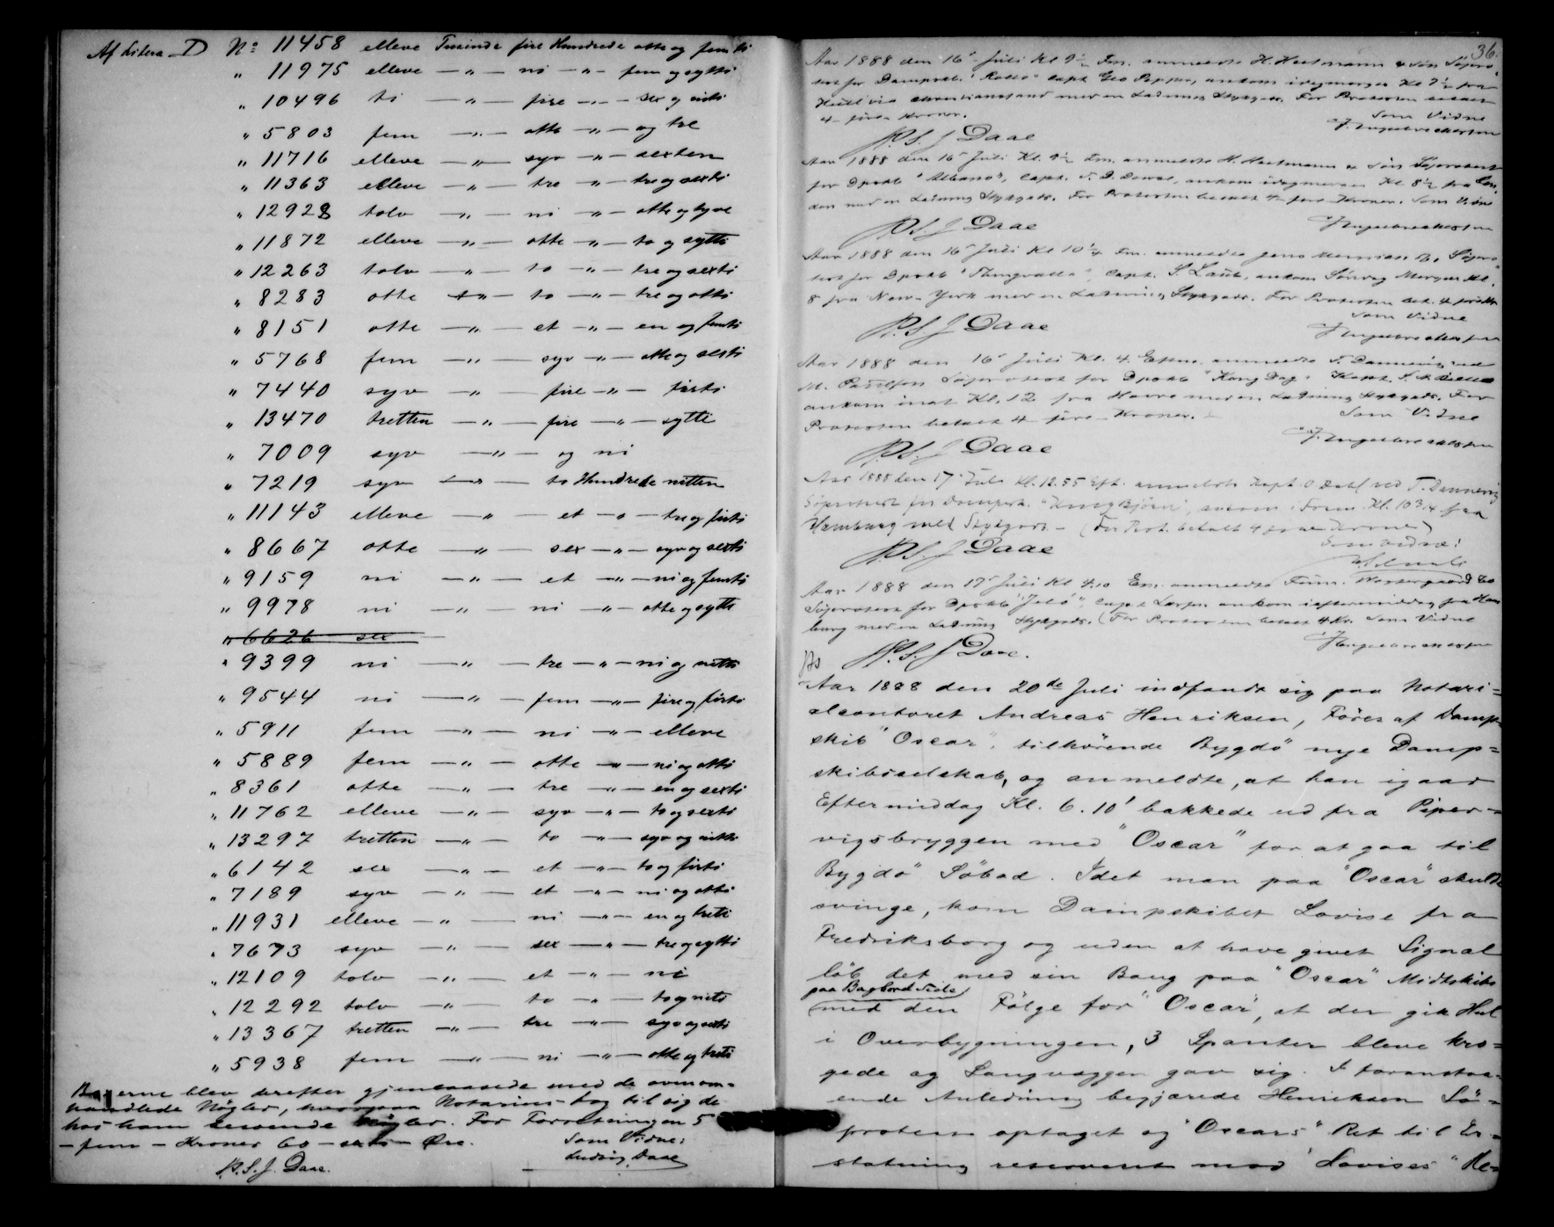 Af Litera D № 11458 elleve Tusinde fire Hundrede otte og femti
" 11975 elleve — " — ni — " — fem og sytti
" 10496 ti — " — fire — " — sex og nitti
" 5803 fem — " — otte — " — og tre
" 11716 elleve — " — syv — " — sexten
" 11363 elleve — " — tre — " — tre og sexti
" 12928 tolv — " — ni — " — otte og tyve
" 11872 elleve — " — otte — " — to og sytti
" 12263 tolv — " — to — " — tre og sexti
" 8283 otte — " — to — " — tre og otti
" 8151 otte — " — et — " — en og femti
" 5768 fem — " — syv — " — otte og sexti
" 7440 syv — " — fire — " — firti
" 13470 tretten — " — fire — " — sytti
" 7009 syv — " — og ni
" 7219 syv — " — to Hundrede nitten
" 11143 elleve — " — et — " — tre og firti
" 8667 otte — " — sex — " — syv og sexti
" 9159 ni — " — et — " — ni og femti
" 9978 ni — " — ni — " — otte og sytti
" 6626 sex
" 9399 ni — " — tre — " — ni og nitti
" 9544 ni — " — fem — " — fire og firti
" 5911 fem — " — ni — " — elleve
" 5889 fem — " — otte — " — ni og otti
" 8361 otte — " — tre — " — en og sexti
" 11762 elleve — " — syv — " — to og sexti
" 13297 tretten — " — to — " — syv og nitti
" 6142 sex — " — et — " — to og firti
" 7189 syv — " — et — " — ni og otti
" 11931 elleve — " — ni — " — en og treti
" 7673 syv — " — sex — " — tre og sytti
" 12109 tolv — " — et — " — ni
" 12292 tolv — " — to — " — to og nitti
" 13367 tretten — " — tre — " — syv og sexti
" 5938 fem — " — ni — " — otte og treti
blev derefter gjenlaasede med de ovenom-
handlede Nøgler, hvorpaa Notarius tog til sig de
hos ham beroende Nøgler. For Forretningen 5
— fem — Kroner 60 — sexti — Øre.
Som Vidne:
Ludvig Daae
P.S.J. Daae.
36.
Aar 1888 den 16 Juli Kl 9½ Fm. anmeldte H. Heitmann & Søn Søpro-
test for Dampskb. "Rollo" Capt. Geo Pepper, ankom idagmorges Kl 7½ fra
Hull via Christianssand med en Ladning Stykgods. For Protesten betalt
4 - fire Kroner. Som Vidne
P.S.J Daae J. Ingebrechtsen
Aar 1888 den 16 Juli Kl. 9½ Fm. anmeldte H. Heitmann & Søn Søprotest
for Dpskb "Albano", Capt. ankom idagmorges Kl 8½ fra Lon-
don med en Ladning Stykgods. For Protesten betalt 4 - fire Kroner. Som Vidne
P.S.J Daae J. Ingebrechtsen
Aar 1888 den 16 Juli Kl 10¼ Fm. anmeldte Jens Meinich & Co Søpro-
test for Dpskb "Thingvalla", Capt. S. Laub, ankom Søndag Morgen Kl.
8 fra New-York med en Ladning Stykgods. For Protesten bet. 4 fire Kr
Som Vidne
P.S.J Daae J Ingebrechtsen
Aar 1888 den 16 Juli Kl. 4. Efterm. anmeldte T. Dannevig ved
M. Paulsen Søprotest for Dpskb "Kong Dag" Kapt.
ankom inat Kl. 12 fra Havre med en Ladning Stykgods. For
Protesten betalt 4 - fire - Kroner. Som Vidne
P.S.J Daae J. Ingebrechtsen
Aar 1888 den 17 Juli Kl. 12.55 Eft. anmeldte Kapt. O Dahl ved T. Dannevig
Søprotest for Dampsk. "Kong Bjørn", ankom i Form. Kl. 10 3/4 fra
Hamburg med Stykgods — (For Prot. betalt 4 fire Kroner)
Som Vidne:
P.S.J Daae
Aar 1888 den 17 Juli Kl 4.10 Em. anmeldte Firm. Westergaard & Co
Søprotest for Dpskb "Jelö", Capt Larsen ankom ieftermiddag fra Ham-
burg med en Ladning Stykgods. (For Protesten betalt 4 Kr. Som Vidne
P.S.J Daae. J Ingebrechtsen
Aar 1888 den 20de Juli indfandt sig paa Notari-
alcontoret Andreas Henriksen, Fører af Damp-
skib "Oscar", tilhørende Bygdö nye Damp-
skibsselskab, og anmeldte, at han igaar
Eftermiddag Kl. 6.10' bakkede ud fra Piper-
vigsbryggen med "Oscar" for at gaa til
Bygdö Söbad. Idet man paa "Oscar" skulde
svinge, kom Dampskibet Lovise fra
Fredriksborg og uden at have givet Signal
löb det med sin Baug paa "Oscar" Midtskibs
paa Bagbord Side
med den Følge for "Oscar", at der gik Hul
i Overbygningen, 3 Spanter bleve knæ-
gede og Langvæggen gav sig. I foranstaa-
ende Anledning begjærede Henriksen Sö-
protest optaget og "Oscars" Ret til Er-
statning reserveret mod "Lovises" Re-